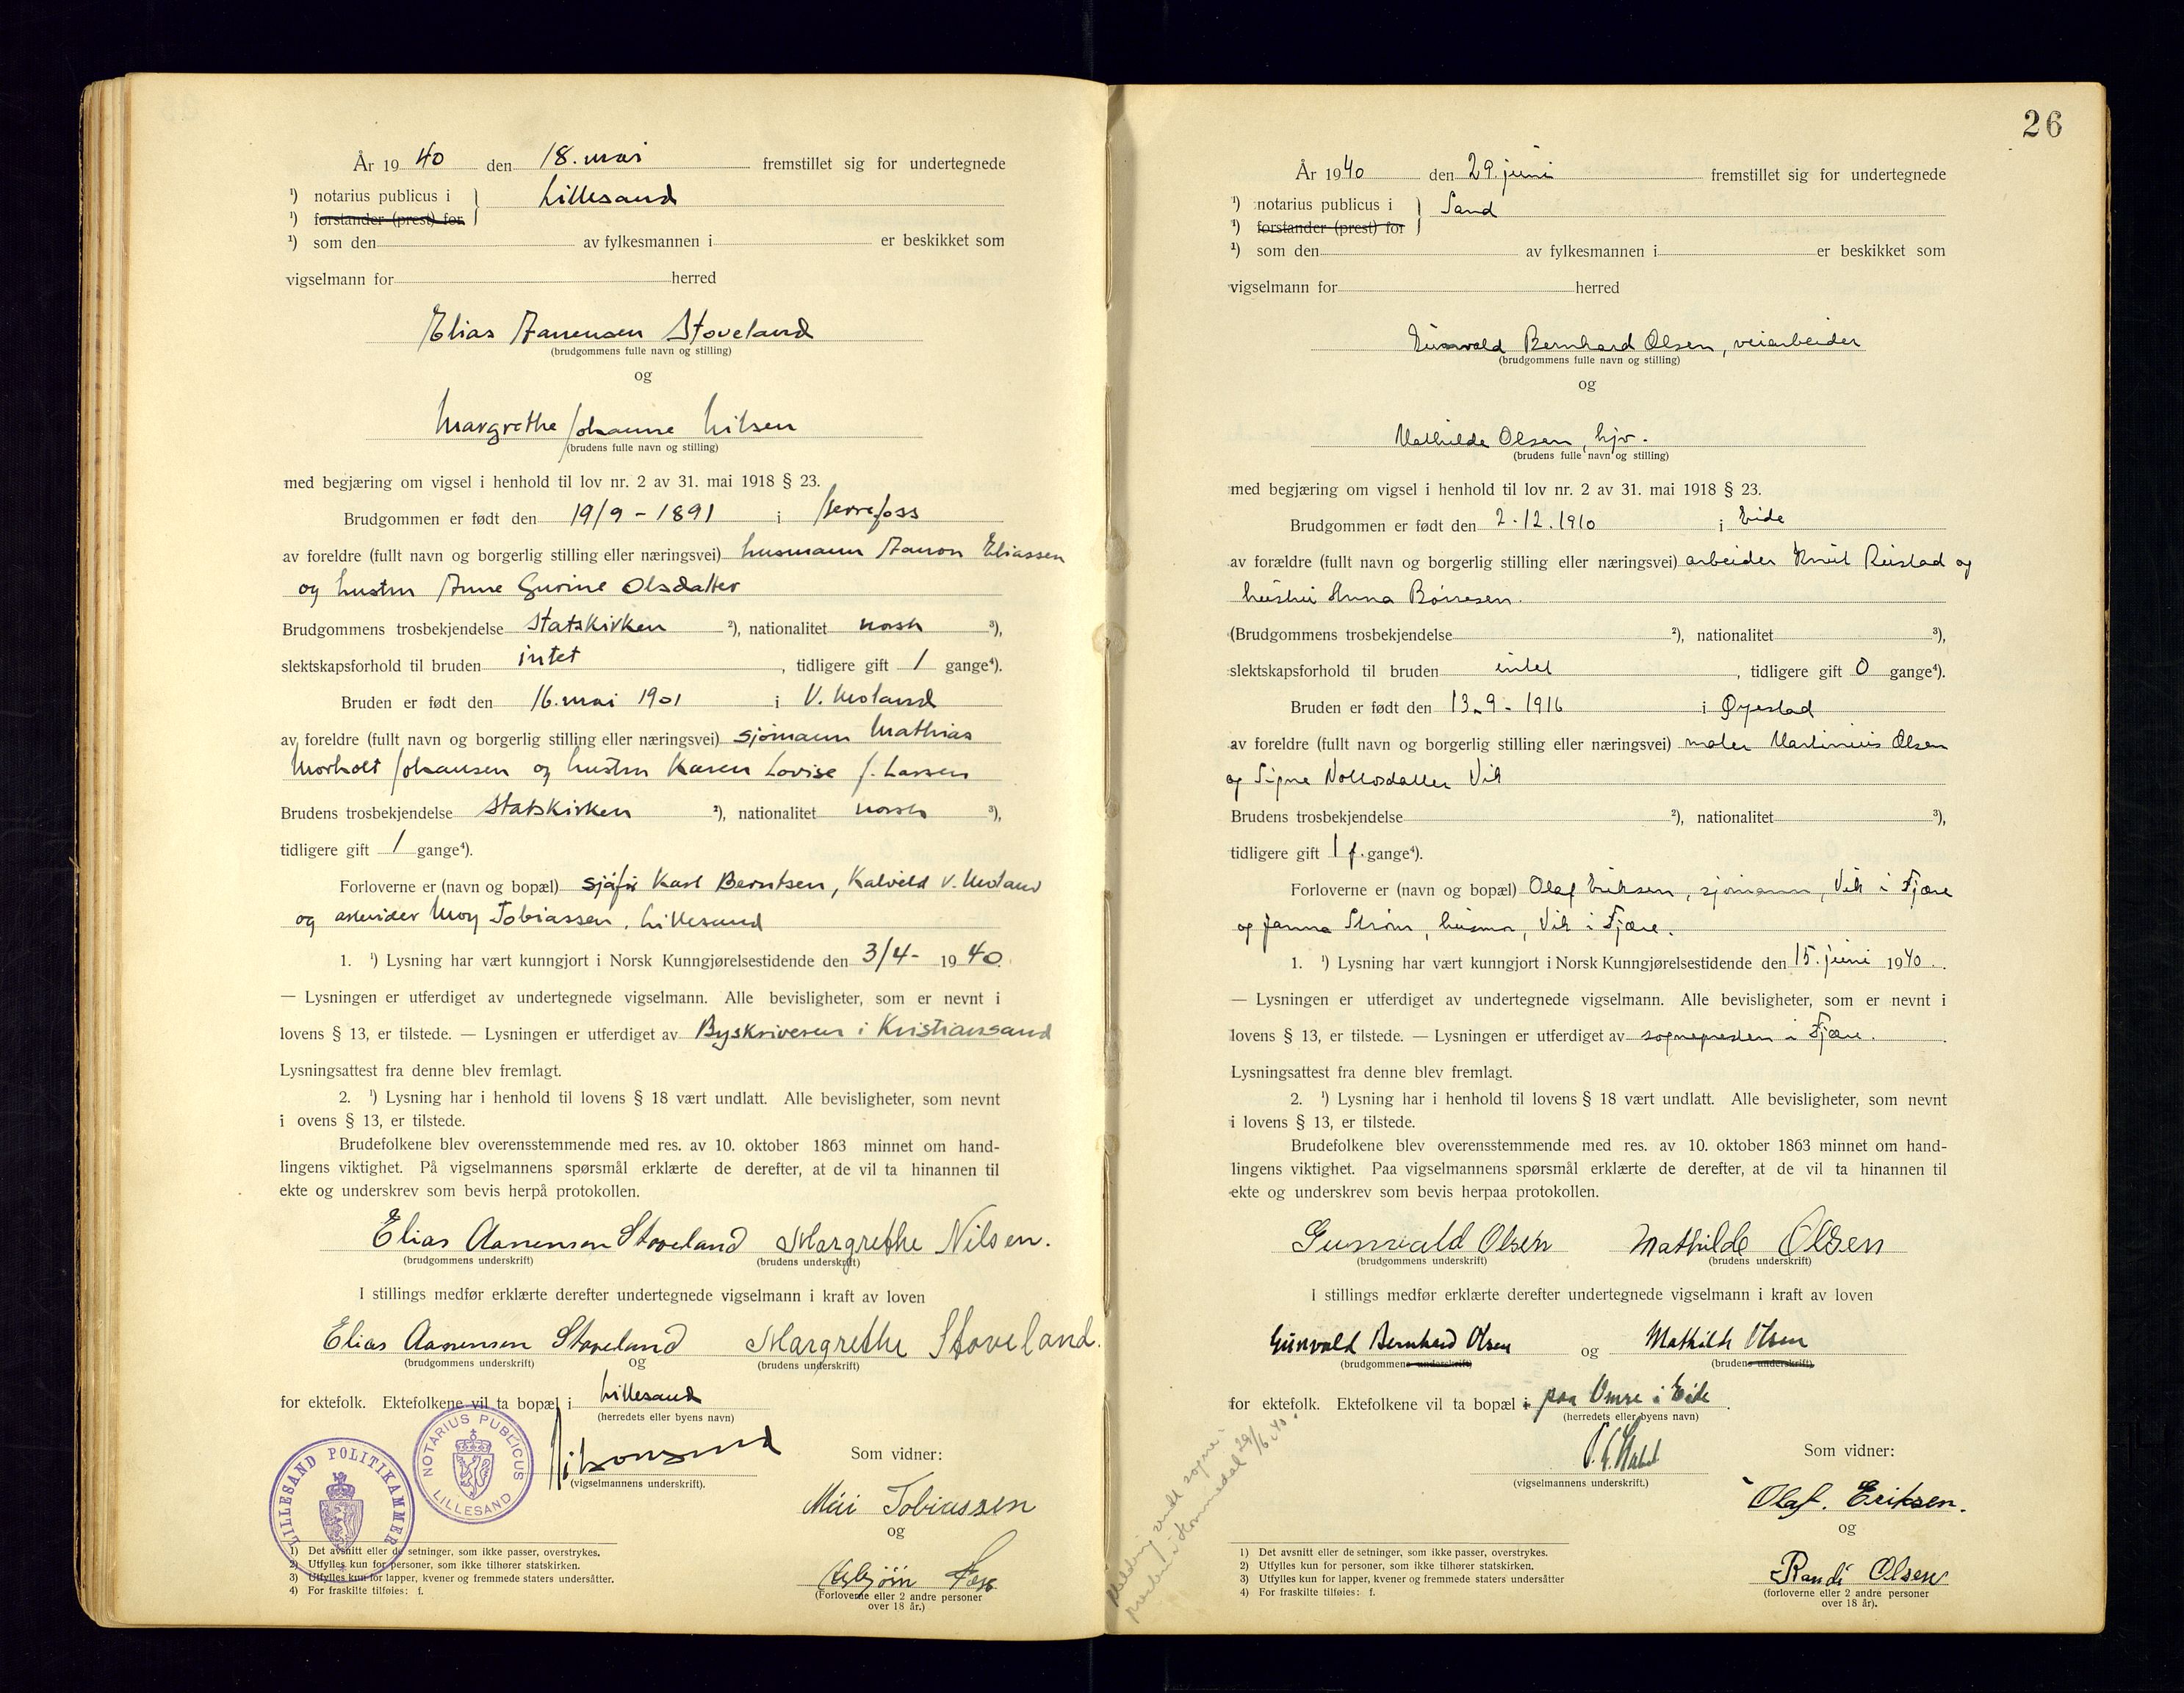 År 1940 den 18. mai fremstillet sig for undertegnede
¹) notarius publicus i } Lillesand
¹) forstander (prest) for
¹) som den av fylkesmannen i er beskikket som
vigselmann for herred
Elias Aanensen Stoveland
(brudgommens fulle navn og stilling)
og
Margrethe Johanne Nilsen
(brudens fulle navn og stilling)
med begjæring om vigsel i henhold til lov nr. 2 av 31. mai 1918 § 23.
Brudgommen er født den 19/9 - 1891 i Herrefoss
av foreldre (fullt navn og borgerlig stilling eller næringsvei) husmann Aanon Eliassen
og hustru Anne Gurine Olsdatter
Brudgommens trosbekjendelse Statskirken ²), nationalitet norsk ³),
slektskapsforhold til bruden intet, tidligere gift 1 gange⁴).
Bruden er født den 16. mai 1901 i V. Moland
av foreldre (fullt navn og borgerlig stilling eller næringsvei) sjømann Mathias
Morholt Johansen og hustru Karen Lovise f. Larsen
Brudens trosbekjendelse Statskirken ²), nationalitet norsk ³),
tidligere gift 1 gange⁴).
Forloverne er (navn og bopæl) sjåfør Karl Berntsen, Kalveld V. Moland
og arbeider Moy Tobiassen, Lillesand
1. ¹) Lysning har vært kunngjort i Norsk Kunngjørelsestidende den 3/4- 1940.
— Lysningen er utferdiget av undertegnede vigselmann. Alle bevisligheter, som er nevnt i
lovens § 13, er tilstede. — Lysningen er utferdiget av Byskriveren i Kristiansand
Lysningsattest fra denne blev fremlagt.
2. ¹) Lysning har i henhold til lovens § 18 vært undlatt. Alle bevisligheter, som nevnt
i ovens § 13, er tilstede.
Brudefolkene blev overensstemmende med res. av 10. oktober 1863 minnet om hand-
lingens viktighet. På vigselmannens spørsmål erklærte de derefter, at de vil ta hinannen til
ekte og underskrev som bevis herpå protokollen.
Elias Aanensen Stoveland Margrethe Nilsen.
(brudgommens underskrift) (brudens underskrift)
I stillings medfør erklærte derefter undertegnede vigselmann i kraft av loven
Elias Aanensen Stoveland og Margrethe Stoveland.
(brudgommens underskrift) (brudens underskrift)
for ektefolk. Ektefolkene vil ta bopæl i Lillesand
(herredets eller byens navn)
(vigselmannens underskrift).
Som vidner:
Tobiassen
og
Asbjörn
(Forloverne eller 2 andre personer
over 18 år.)
LILLESAND POLITIKAMMER
NOTARIUS PUBLICUS LILLESAND
1) Det avsnitt eller de setninger, som ikke passer, overstrykes.
2) Utfylles kun for personer, som ikke tilhører statskirken.
3) Utfylles kun for lapper, kvener og fremmede staters undersåtter.
4) For fraskilte tilføies: f.
26
År 1940 den 29. juni fremstillet sig for undertegnede
¹) notarius publicus i } Sand
¹) forstander (prest) for
¹) som den av fylkesmannen i er beskikket som
vigselmann for herred
Gunvald Bernhard Olsen, veiarbeider
(brudgommens fulle navn og stilling)
og
Mathilde Olsen, hjv.
(brudens fulle navn og stilling)
med begjæring om vigsel i henhold til lov nr. 2 av 31. mai 1918 § 23.
Brudgommen er født den 2.12.1910 i Eide
av forældre (fullt navn og borgerlig stilling eller næringsvei) arbeider Knut Reistad og
hustru Anna Børresen.
(Brudgommens trosbekjendelse ²), nationalitet ³),
slektskapsforhold til bruden intet, tidligere gift 0 gange⁴).
Bruden er født den 13-9-1916 i Øyestad
av foreldre (fullt navn og borgerlig stilling eller næringsvei) maler Martinius Olsen
og Signe Vik
Brudens trosbekjendelse ²), nationalitet ³),
tidligere gift 1 f. gange⁴).
Forloverne er (navn og bopæl) Olaf Eriksen, sjømann, Vik i Fjære
og Janna Strøm, husmor, Vik i Fjære.
1. ¹) Lysning har vært kunngjort i Norsk Kunngjørelsestidende den 15. juni 1940.
— Lysningen er utferdiget av undertegnede vigselmann. Alle bevisligheter, som er nevnt i
lovens § 13, er tilstede. — Lysningen er utferdiget av sognepresten i Fjære.
Lysningsattest fra denne blev fremlagt.
2. ¹) Lysning har i henhold til lovens § 18 vært undlatt. Alle bevisligheter, som nevnt
i lovens § 13, er tilstede.
Brudefolkene blev overensstemmende med res. av 10. oktober 1863 minnet om hand-
lingens viktighet. Paa vigselmannens spørsmål erklærte de derefter, at de vil ta hinannen til
ekte og underskrev som bevis herpaa protokollen.
Gunvald Olsen Mathilde Olsen
(brudgommens underskrift) (brudens underskrift)
I stillings medfør erklærte derefter undertegnede vigselmann i kraft av loven
Gunvald Bernhard Olsen og Mathilde Olsen
(brudgommens underskrift) (brudens underskrift)
for ektefolk. Ektefolkene vil ta bopæl i paa Omre i Eide.
(herredets eller byens navn)
(vigselmannens underskrift.)
Som vidner:
Olaf. Eriksen.
og
Randi Olsen
(forloverne eller 2 andre personer
over 18 år).
Melding sendt sogne-
presten i Hommedal 29/6.40.
1) Det avsnitt eller de setninger, som ikke passer, overstrykes.
2) Utfylles kun for personer, som ikke tilhører statskirken.
3) Utfylles kun for lapper, kvener og fremmede staters undersåtter
4) For fraskilte tilføies: f.